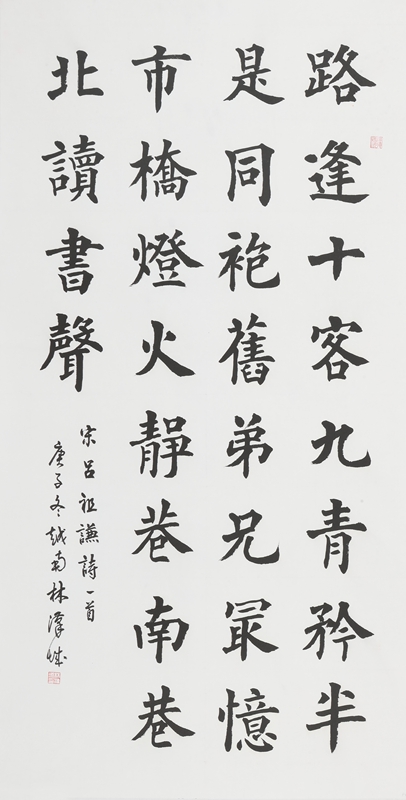 路逢十客九青矜半
是同袍舊弟兄最憶
市橋燈火靜巷南巷
北讀書聲
宋呂祖謙詩一首
庚子冬越南林漢城